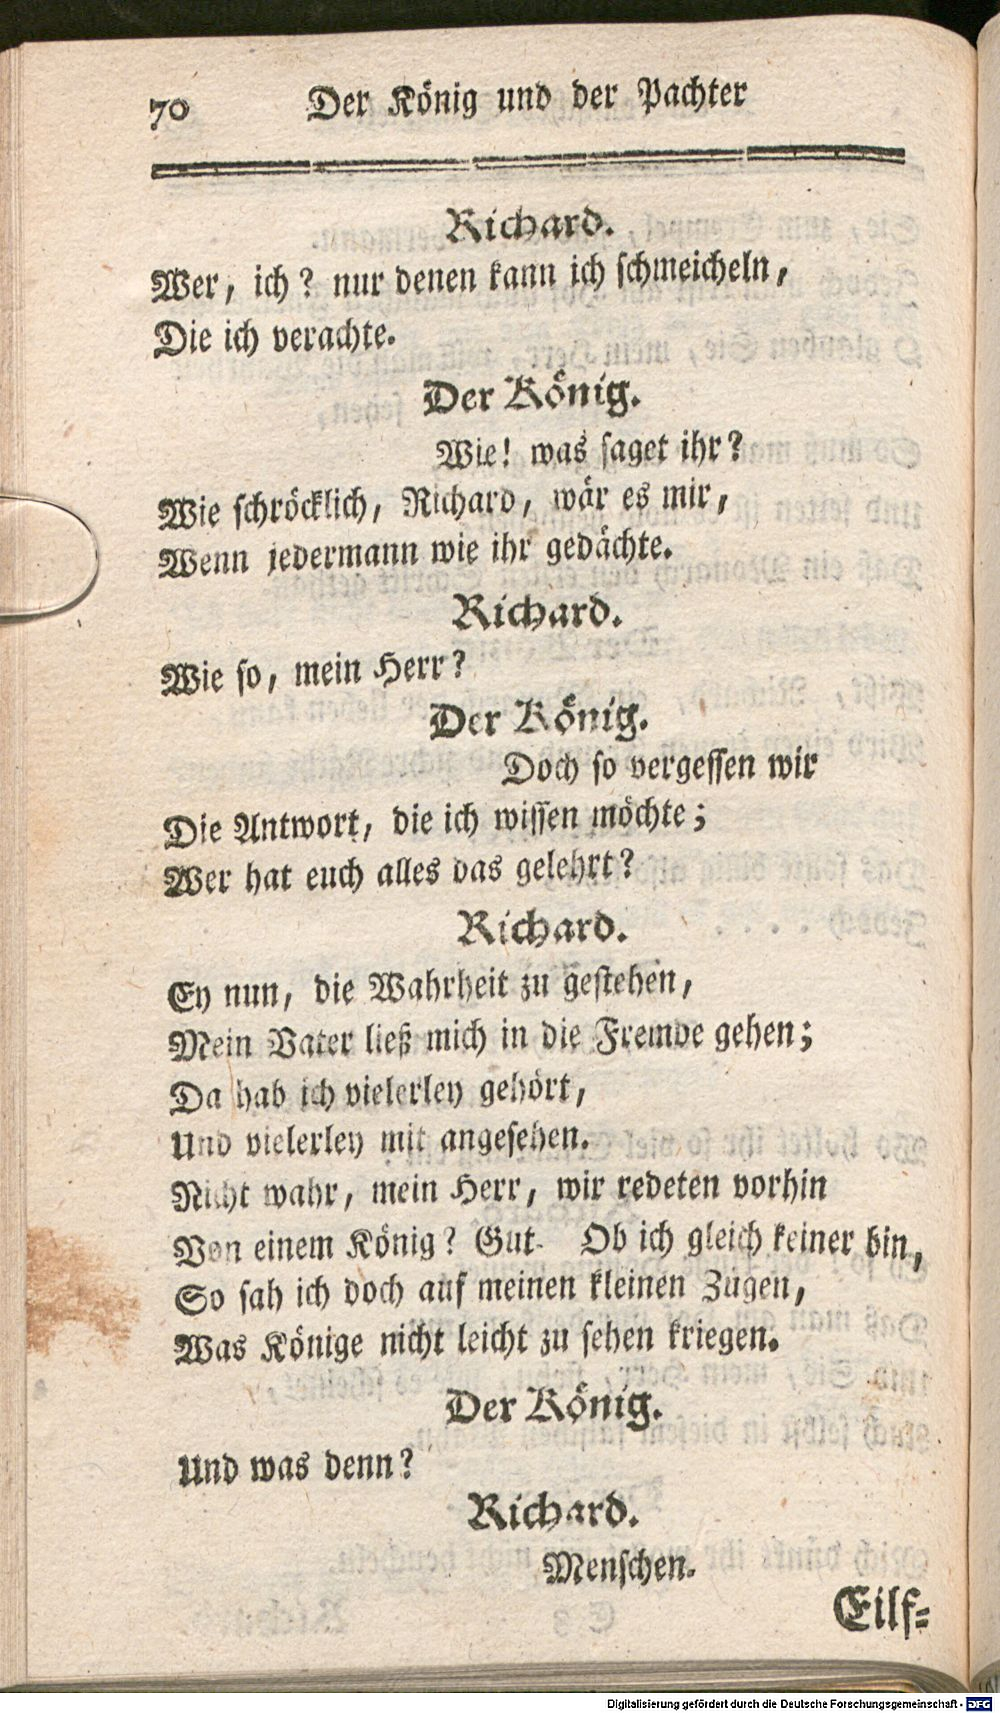 70 Der König und der Pachter
Richard.
Wer, ich? nur denen kann ich schmeicheln,
Die ich verachte.
Der König.
Wie! was saget ihr?
Wie schröcklich, Richard, wär es mir,
Wenn jedermann wie ihr gedächte.
Richard.
Wie so, mein Herr?
Der König.
Doch so vergessen wir
Die Antwort, die ich wissen möchte;
Wer hat euch alles das gelehrt?
Richard.
Ey nun, die Wahrheit zu gestehen,
Mein Vater ließ mich in die Fremde gehen;
Da hab ich vielerley gehört,
Und vielerley mit angesehen.
Nicht wahr, mein Herr, wir redeten vorhin
Von einem König? Gut. Ob ich gleich keiner bin,
So sah ich doch auf meinen kleinen Zügen,
Was Könige nicht leicht zu sehen kriegen.
Der König.
Und was denn?
Richard.
Menschen.
Eilf=
Digitalisierung gefördert durch die Deutsche Forschungsgemeinschaft - DFG